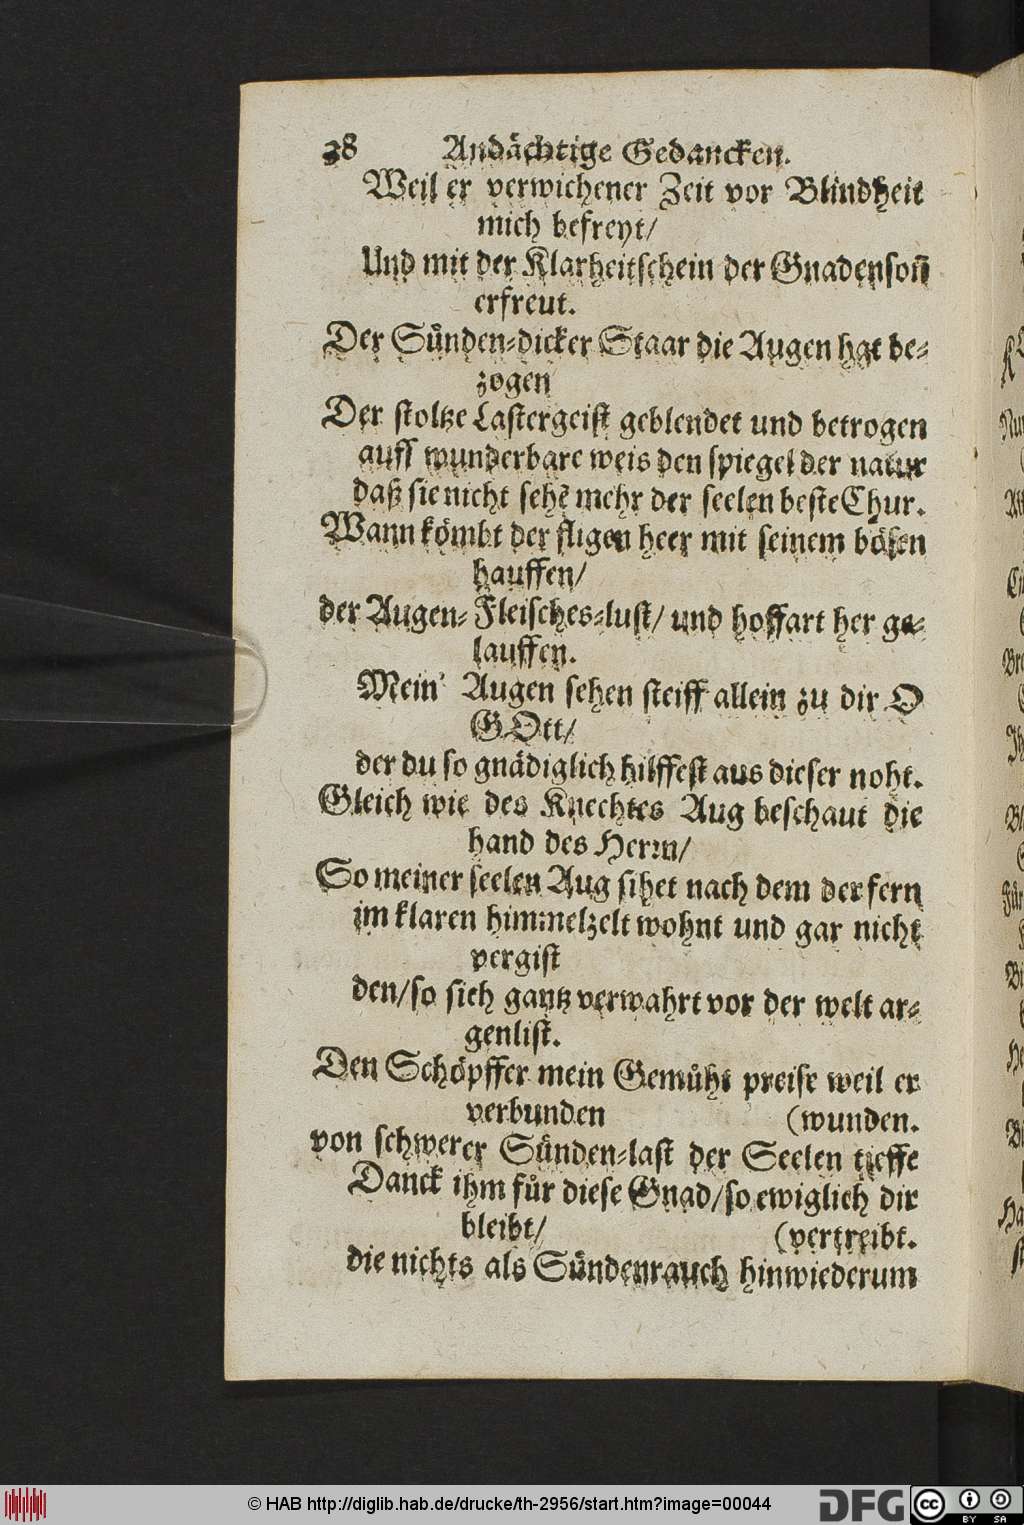 38 Andächtige Gedancken.
Weil er verwichener Zeit vor Blindheit
mich befreyt/
Und mit der Klarheitschein der Gnadensoñ
erfreut.
Der Sünden-dicker Staar die Augen hat be-
zogen
Der stoltze Lastergeist geblendet und betrogen
auff wunderbare weis den spiegel der natur
daß sie nicht sehẽ mehr der seelen beste Chur.
Wann kömbt der fligen heer mit seinem bösen
hauffen/
der Augen-Fleisches-lust/ und hoffart her ge-
lauffen.
Mein' Augen sehen steiff allein zu dir O
GOtt/
der du so gnädiglich hilffest aus dieser noht.
Gleich wie des Knechtes Aug beschaut die
hand des Herrn/
So meiner seelen Aug sihet nach dem der fern
im klaren himmelzelt wohnt und gar nicht
vergist
den/so sich gantz verwahrt vor der welt ar-
genlist.
Den Schöpffer mein Gemüht preise weil er
verbunden (wunden.
von schwerer Sünden-last der Seelen tieffe
Danck ihm für diese Gnad/so ewiglich dir
bleibt/ (vertreibt.
die nichts als Sündenrauch hinwiederum
© HAB http://diglib.hab.de/drucke/th-2956/start.htm?image=00044
DFG
cc BY SA